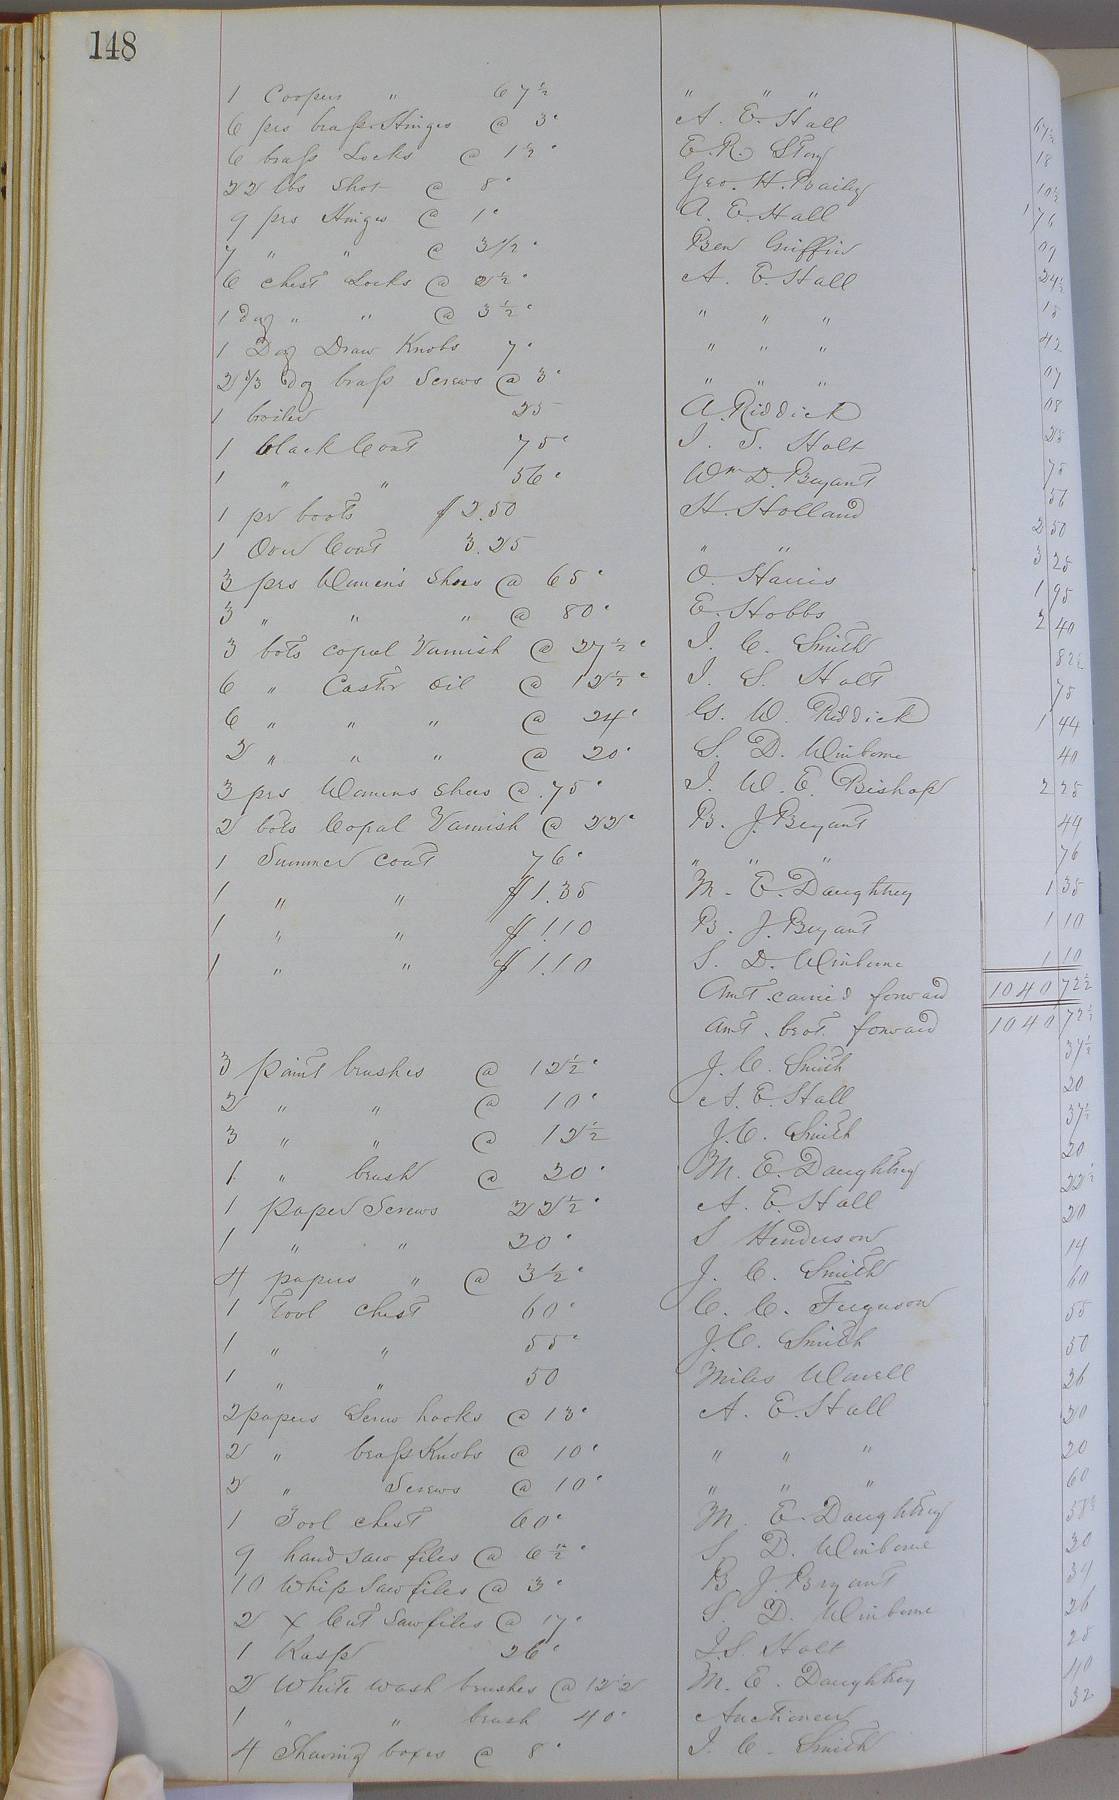 148
1 Coopers " 67½ " " "
6 prs brass Hinges @ 3c A. E. Hall 67½
6 brass Locks @ 1½c E. R. Story 18
22 lbs Shot @ 8c Geo. H. Bailey 10½
9 prs Hinges @ 1c A. E. Hall 1 76
7 " " @ 3½c Ben Griffin 09
6 chest Locks @ 2½c A. E. Hall 24½
1 Doz " " @ 3½c " " " 15
1 Doz Draw Knobs 7c " " " 42
2⅔ Doz brass Screws @ 3c " " " 07
1 boiler 25 A. Riddick 08
1 black Coat 75c J. S. Holt 25
1 " " 56c Wm D. Bryant 75
1 pr boots $2.50 H. Holland 56
1 Over Coat 3.25 " " 2 50
3 prs Women's Shoes @ 65c O. Harris 3 25
3 " " " @ 80c E. Hobbs 1 95
3 bots copal Varnish @ 27½c J. C. Smith 2 40
6 " Castor Oil @ 12½c J. S. Holt 82½
6 " " " @ 24c G. W. Riddick 75
2 " " " @ 20c S. D. Winborne 1 44
3 prs Womens Shoes @ .75c J. W. E. Bishop 40
2 bots Copal Varnish @ 22c B. J. Bryant 2 25
1 Summer coat 76c " " " 44
1 " " $1.35 M. E. Daughtrey 76
1 " " $1.10 B. J. Bryant 1 35
1 " " $1.10 S. D. Winborne 1 10
1 10
Amt. carried forward 1040 72½
Amt. brot. forward 1040 72½
3 Paint brushes @ 12½c J. C. Smith 37½
2 " " @ 10c A. E. Hall 20
3 " " @ 12½ J. C. Smith 37½
1 " brush @ 20c M. E. Daughtrey 20
1 paper Screws 22½c A. E. Hall 22½
1 " " 20c S Henderson 20
4 papers " @ 3½c J. C. Smith 14
1 Tool chest 60c C. C. Ferguson 60
1 " " 55c J. C. Smith 55
1 " " 50 Miles 50
2 papers Screw hooks @ 13c A. E. Hall 26
2 " brass Knobs @ 10c " " " 20
2 " Screws @ 10c " " " 20
1 Tool chest 60c M. E. Daughtrey 60
9 hand saw files @ 6½c S. D. Winborne 58½
10 Whip Saw files @ 3c B. J. Bryant 30
2 X Cut Saw files @ 17c S. D. Winborne 34
1 Rasp 26c J. S. Holt 26
2 White wash brushes @ 12½ M. E. Daughtrey 25
1 " " brush 40c Auctioneer 40
4 Shaving boxes @ 8c J. C. Smith 32